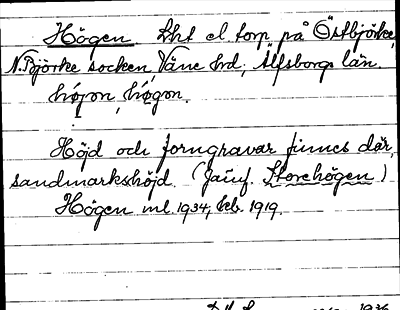 Högen lht el. torp på Östbjörke,
N. Björke socken, Väne hd, Älfsborgs län.
højon, høgon.
Höjd och forngravar finnes där,
sandmarkshöjd. (Jämf. Storehögen)
Högen ml. 1934, kb. 1919.